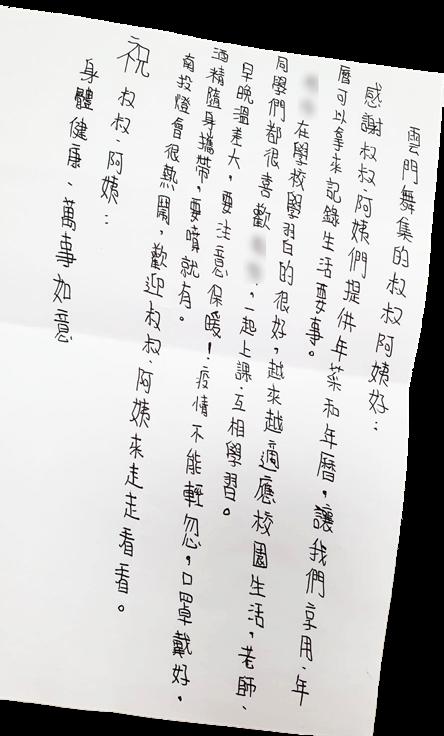 雲門舞集的叔叔阿姨好:
感謝叔叔、阿姨們提供年菜和年曆,讓我們享用、年
曆可以拿來記錄生活要事。
在學校學習的很好,越來越適應校園生活,老師、
同學們都很喜歡,一起上課、互相學習。
早晚溫差大,要注意保暖!疫情不能輕忽,口罩戴好,
酒精隨身攜帶,要噴就有。
南投燈會很熱鬧,歡迎叔叔、阿姨來走走看看。
祝叔叔、阿姨:
身體健康、萬事如意